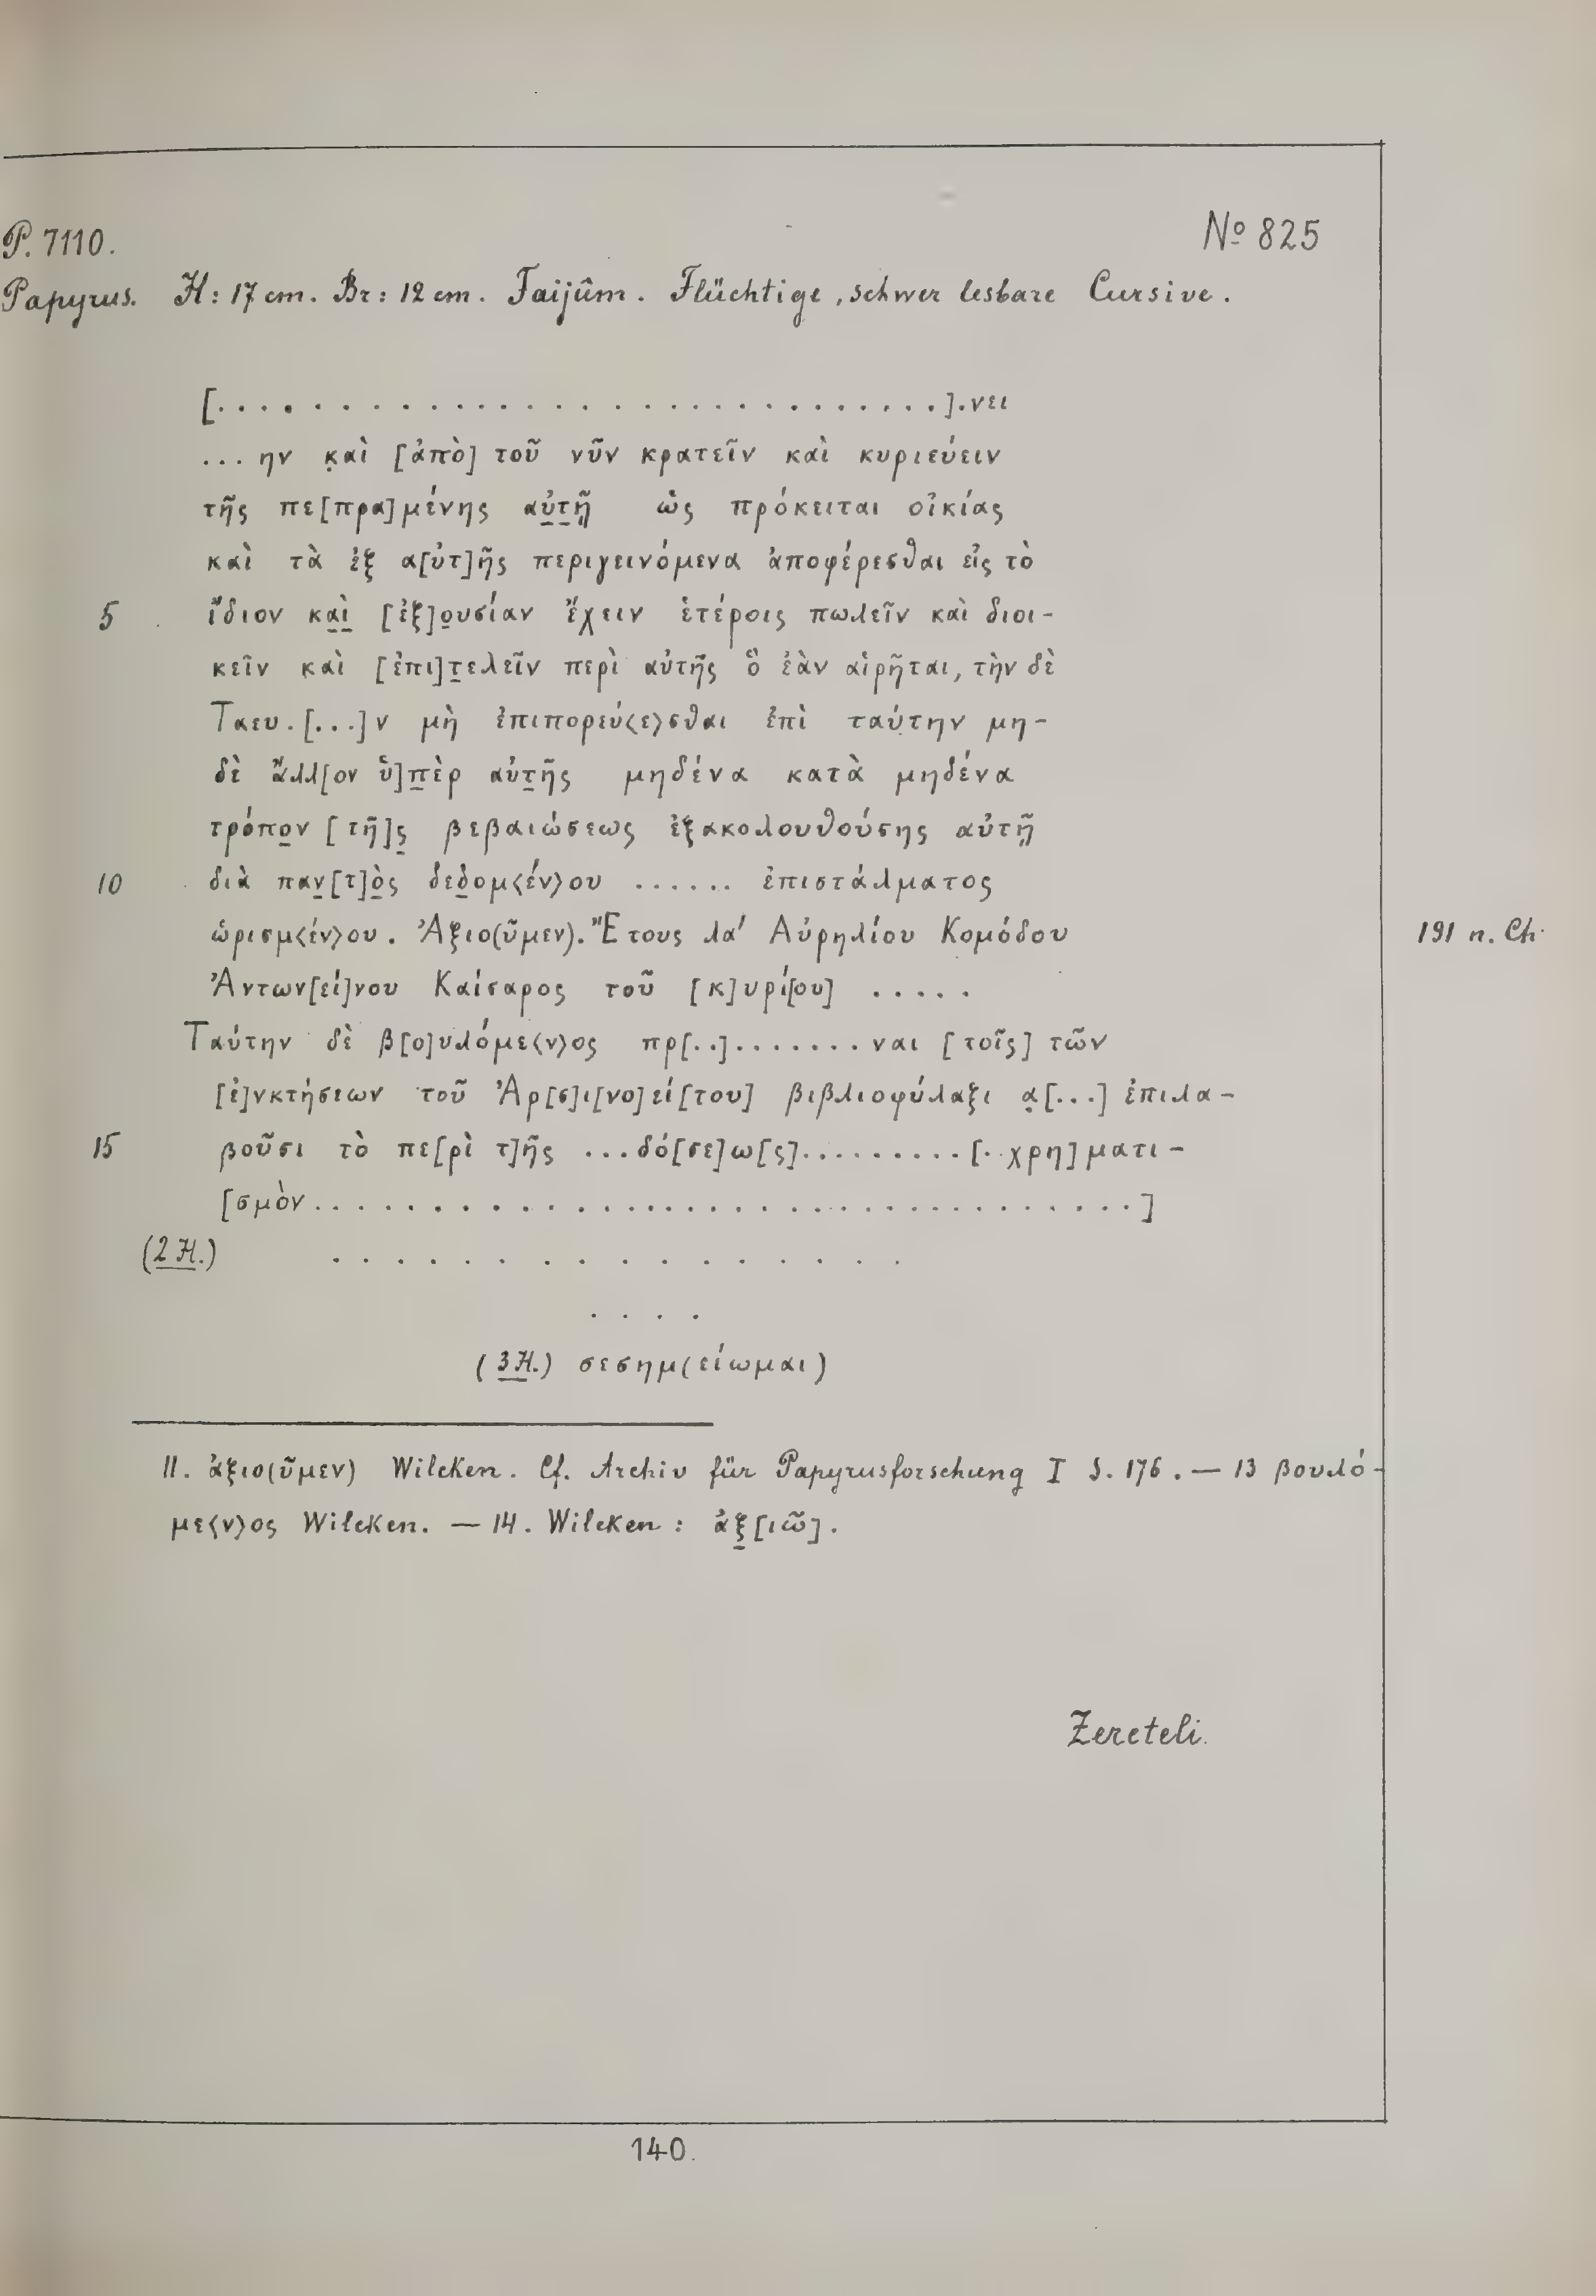 P. 7110.
Nº 825
Papyrus. H: 17 cm. Br: 12 cm. Faijûm. Flüchtige, schwer lesbare Cursive.
[. . . . . . . . . . . . . . . . . . . . . . . . . . .].νει
...ην κ̣αὶ [ἀπὸ] τοῦ νῦν κρατεῖν καὶ κυριεύειν
τῆς πε[πρα]μένης αὐ̲τ̲ῇ̲ ὡς πρόκειται οἰκίας
καὶ τὰ ἐξ α[ὐτ]ῆς περιγεινόμενα ἀποφέρεσθαι εἰς τὸ
5 ἴδιον κα̲ὶ̲ [ἐξ]ο̲υσίαν ἔχειν ἑτέροις πωλεῖν καὶ διοι-
κεῖν καὶ [ἐπι]τ̲ελεῖν περὶ αὐτῆς ὃ ἐὰν αἱρῆται, τὴν δὲ
Ταευ.[...]ν μὴ ἐπιπορεύ<ε>σθαι ἐπὶ ταύτην μη-
δὲ ἄλλ[ον ὑ]π̲ὲρ αὐτ̲ῆς μηδένα κατὰ μηδένα
τρόπο̲ν [τῆ]ς̲ βεβαιώσεως ἐξακολουθούσης αὐτῇ
10 διὰ παν̲[τ]ὸ̲ς δεδ̲ομ<έν>ου ...... ἐπιστάλματος
ὡρισμ<έν>ου. Ἀξιο(ῦμεν). Ἔτους λα' Αὐρηλίου Κομόδου
191 n. Ch.
Ἀντων[εί]νου Καίσαρος τοῦ [κ]υρί[ου] .....
Ταύτην δὲ β[ο]υλόμε<ν>ος πρ[..].......ναι [τοῖς] τῶν
[ἐ]νκτήσεων τοῦ Ἀρ[σ]ι[νο]εί[του] βιβλιοφύλαξι α̣[...] ἐπιλα-
15 βοῦσι τὸ πε[ρὶ τ]ῆς ...δό[σε]ω[ς].........[. χρη]ματι-
[σμὸν. . . . . . . . . . . . . . . . . . . . . . . . . . . . . .]
(2 H.) . . . . . . . . . . . . . . . .
. . . .
(3 H.) σεσημ(είωμαι)
11. ἀξιο(ῦμεν) Wilcken. Cf. Archiv für Papyrusforschung I S. 176. — 13 βουλό-
με<ν>ος Wilcken. — 14. Wilcken: ἀξ̲[ιῶ].
Zereteli.
140.